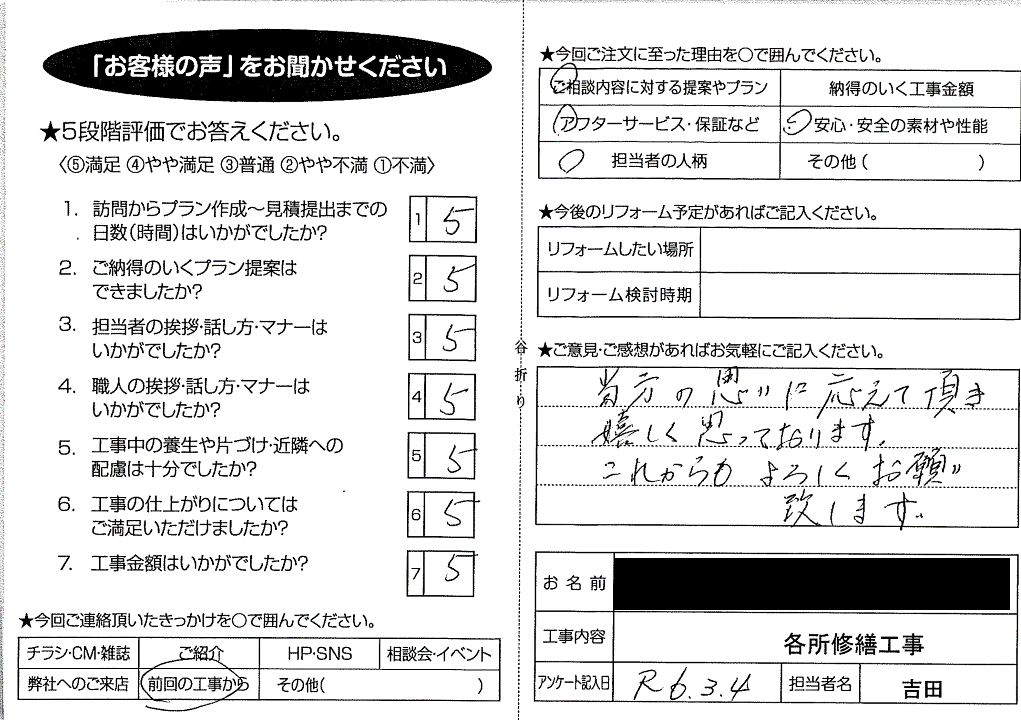 「お客様の声」をお聞かせください
★5段階評価でお答えください。
〈⑤満足 ④やや満足 ③普通 ②やや不満 ①不満〉
1. 訪問からプラン作成〜見積提出までの
日数(時間)はいかがでしたか?
1 5
2. ご納得のいくプラン提案は
できましたか?
2 5
3. 担当者の挨拶・話し方・マナーは
いかがでしたか?
3 5
4. 職人の挨拶・話し方・マナーは
いかがでしたか?
4 5
5. 工事中の養生や片づけ・近隣への
配慮は十分でしたか?
5 5
6. 工事の仕上がりについては
ご満足いただけましたか?
6 5
7. 工事金額はいかがでしたか?
7 5
★今回ご連絡頂いたきっかけを○で囲んでください。
チラシ・CM・雑誌 ご紹介 HP・SNS 相談会・イベント
弊社へのご来店 前回の工事から その他( )
谷折り
★今回ご注文に至った理由を○で囲んでください。
ご相談内容に対する提案やプラン 納得のいく工事金額
アフターサービス・保証など 安心・安全の素材や性能
担当者の人柄 その他( )
★今後のリフォーム予定があればご記入ください。
リフォームしたい場所
リフォーム検討時期
★ご意見・ご感想があればお気軽にご記入ください。
当方の思いに応えて頂き
嬉しく思っております。
これからもよろしくお願い
致します。
お名前
工事内容 各所修繕工事
アンケート記入日 R6.3.4 担当者名 吉田